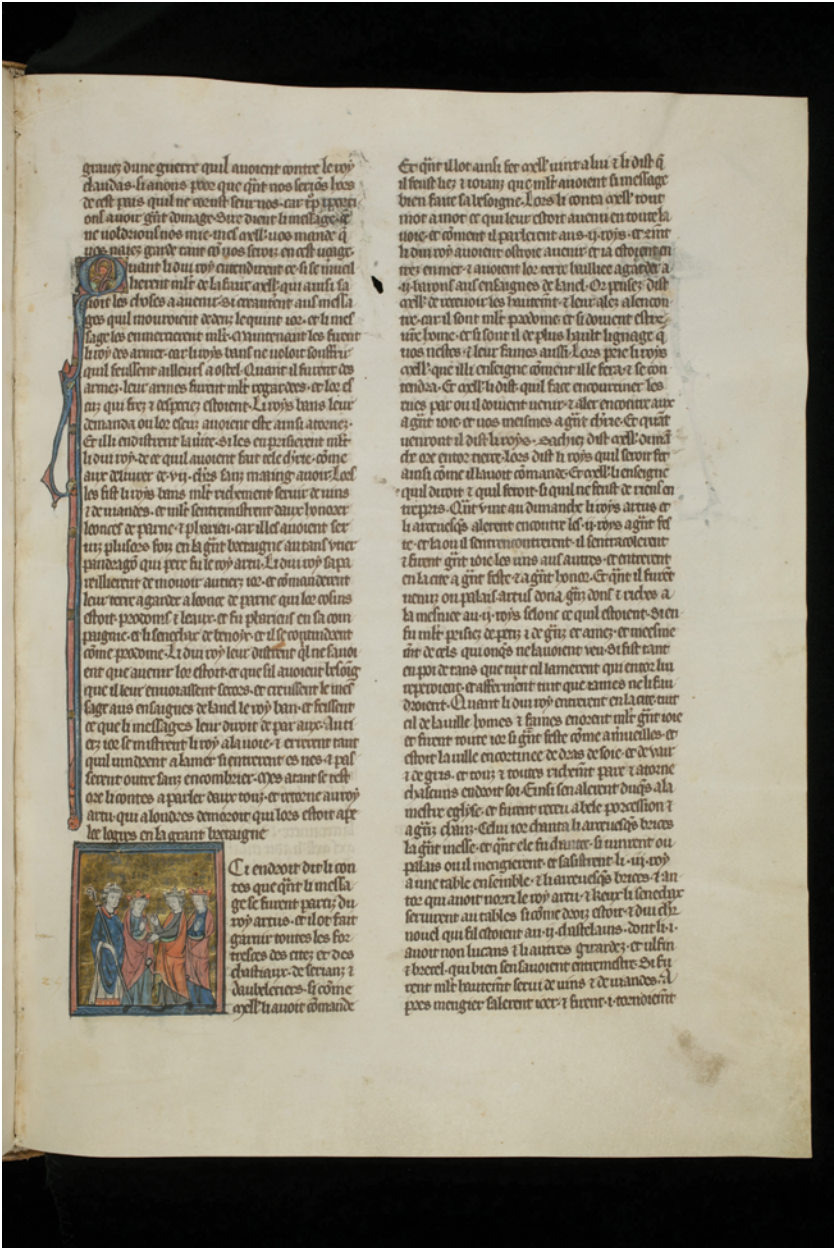 greuez dune guerre quil auoient contre le roy
claudas. si auons peor que qnt nos serons hors
de cest pais quil ne corust seur nos. car
ons auoir gnt domage. Sire dient li message
ne voldrions nos mie. mes vos mande q
vos naiez garde tant en cest
Quant li dui roy entendirent ce. si se mueil
lierent mlt de la qui ainsi sa
uoit les choses a auenir. si creantent aus messa
ges quil mouroient dedenz le quint ior. et li mes
sage les enmercierent mlt. maintenant les firent
li roy desarmer. car li roys bans ne voloit souffrir
quil feussent ailleurs a ostel. Quant il furent des
armez. leur armes furent mlt regardees. et lor es
cuz qui frez z despeciez estoient. Li roys bans leur
demanda ou lor escu auoient este ainsi atornez.
Et il len distrent la uite. si les en prisierent mlt
li dui roy. de ce quil auoient fait tele chrie. come
aux deliurer de .vij. chrs sanz auoir. Lors
les fist li roys bans mlt richement seruir de vins
z de viandes. et mlt sentremistrent daux honorer
leonces de paerne. z pharien. car il les auoient ser
uiz plusors foiz en la gnt bretaigne au tans vter
pandragon qui pere fu le roy artu. Li dui roy sapa
reillierent de mouoir au tierz ior. et comanderent
leur terre a garder a leonce de paerne qui lor cosins
estoit. prodoms z leaux. et fu phariens en sa com
paignie. et li seneschax de benoyc. et il se contindrent
come preodome. Li dui roy leur distrent ql ne sauoi
ent que auenir lor estoit. et que sil auoient besoing
que il leur enuoiassent secors. et creussent le mes
sage aus ensaignes de lanel le roy ban. et feissent
ce que li messages leur diroit de par aux. Au ti
erz ior se mistrent li roy a la uoie. z errerent tant
quil uindrent a la mer. si entrerent es nes. z pas
serent outre sanz encombrier. Mes atant se test
ore li contes a parler daux touz. et retorne au roy
artu. qui a londres demoroit qui lors estoit apelee
logres en la grant bretaigne
Ci endroit dit li con
tes que qnt li messa
ge se furent partiz du
roy artus. et il ot fait
garnir toutes les for
tresces des citez et des
chastiaux. de serianz z
darbelestiers. si come
li auoit comande
Et qnt il lot ainsi fet vint a lui z li dist q
il feust liez z ioianz que mlt auoient si message
bien faite sa besoigne. Lors li conta tout
mot a mot ce qui leur estoit auenu en toute la
uoie. et coment il parlerent aus .ij. roys. et coment
li dui roy auoient otroie a uenir. et ia estoient en
trez en mer. z auoient lor terre bailliee a garder a
.ij. barons aus ensaignes de lanel. Or pensez dist
de receuoir les hautemt. z leur alez alencon
tre. car il sont mlt preodome. et si doiuent estre
vre home. et si sont il de plus hault lignage q
vos nestes. z leur fames aussi. Lors prie li roys
que il li enseigne coment il le fera. z se con
tendra. Et li dist quil face encourtiner les
rues par ou il doiuent uenir. z aler encontre aux
a gnt ioie et uos meismes a gnt chrie. Et quant
venront il dist li roys. Sachiez dist
che ore entor tierce. Lors dist li roys quil seroit fet
ainsi come il lauoit comande. Et li enseigne
quil diroit z quil feroit. si quil ne feust de riens en
trepris. Qnt vint au dimanche li roys artus et
li arceuesqs alerent encontre les .ij. roys a gnt fes
te. et la ou il sentrencontrerent. il sentracolerent
z firent gnt ioie les uns aus autres. et entrerent
en la cite a gnt feste. z a gnt honor. Et qnt il furent
uenuz ou palais artus dona gnz dons z riches a
la mesniee au .ij. roys selonc ce quil estoient. si en
fu mlt prisiez de petiz z de gnz et amez. et meisme
mt de cels qui onqs ne lauoient veu. Si fist tant
en poi de tans que tuit cil lamerent qui entor lui
reperoient. et afferment tuit que iames ne li fau
droient. Quant li dui roy entrerent en la cite tuit
cil de la uille homes z fames enorent mlt gnt ioie
et firent toute ior si gnt feste come a merueilles. et
estoit la uille encortinee de dras de soie. et de vair
z de gris. et touz z toutes richemt pare z atorne
chascuns endroit soi. Einsi sen alerent duqs a la
mestre eglyse. et furent receu a bele porcession z
a gnz chanz. Celui ior chanta li arceuesqs brices
la gnt messe. et qnt ele fu chantee. si uindrent ou
palais ou il mengierent. et sasistrent li .iij. roy
a une table ensemble. z li arceuesqs brices. z an
tor qui auoit norri le roy artu. z Keux li seneschax
seruirent au tables si come droiz estoit. z dui chr
nouel qui fil estoient au .ij. chastelains. dont li .i.
auoit non lucans. z li autres girardez. et ulfin
z bretel. qui bien sen sauoient entremetre. Si fu
rent mlt hautemt serui de uins z de viandes. A
pres mengier salerent z firent .i. tornoiemt